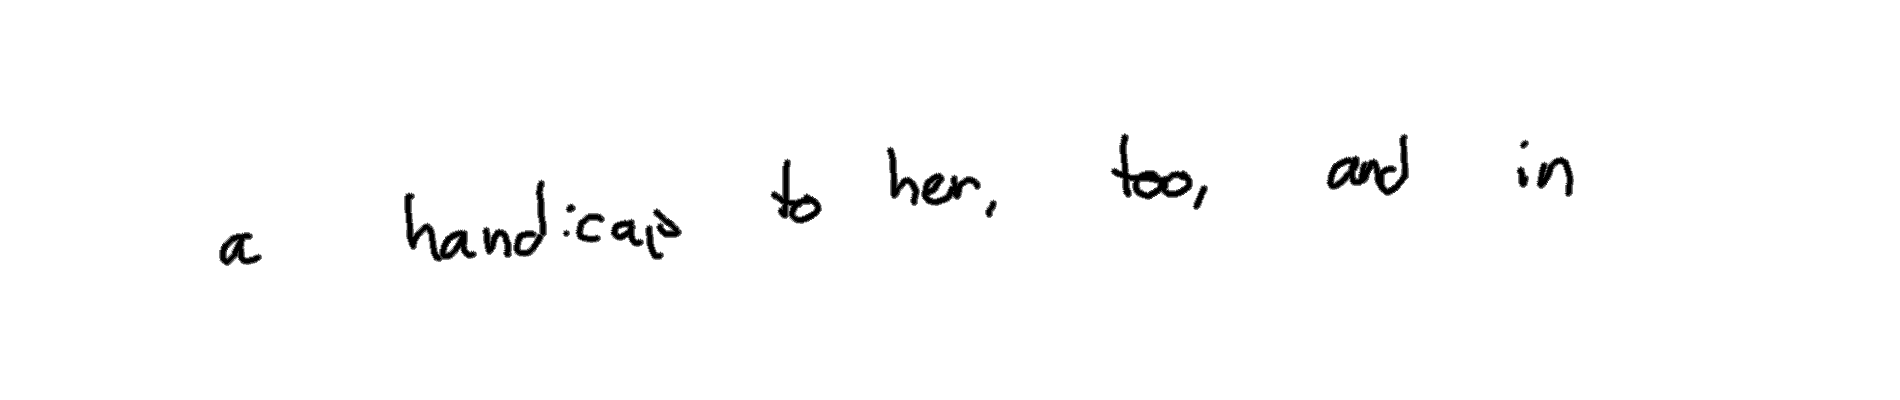 a handicap to her, too, and in